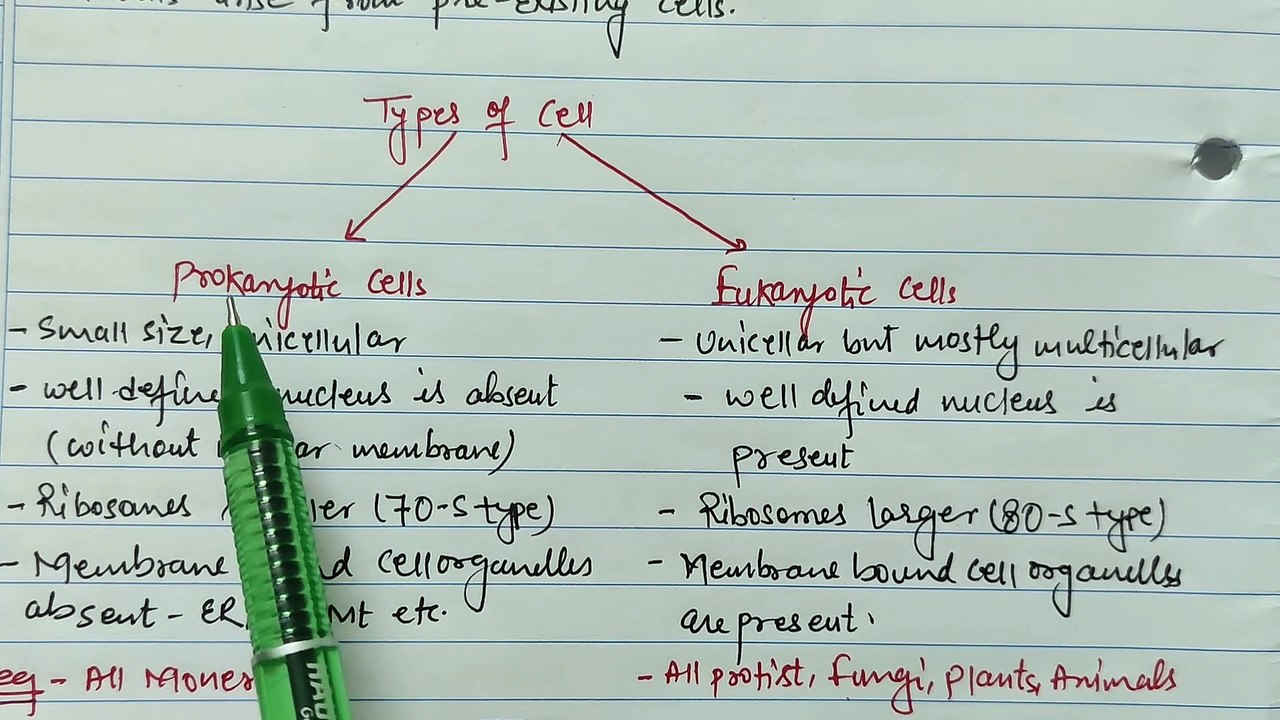 from pre-existing cells.
Types of Cell
Prokaryotic Cells
Eukaryotic Cells
- Small size, unicellular
- well-defined nucleus is absent
(without membrane)
- Ribosomes (70-S type)
- Membrane cell organelles
absent - ER, etc.
eg - All Moner
- Unicellar but mostly multicellular
- well defined nucleus is
present
- Ribosomes larger (80-S type)
- Membrane bound cell organelles
are present.
- All protist, fungi, plants, Animals